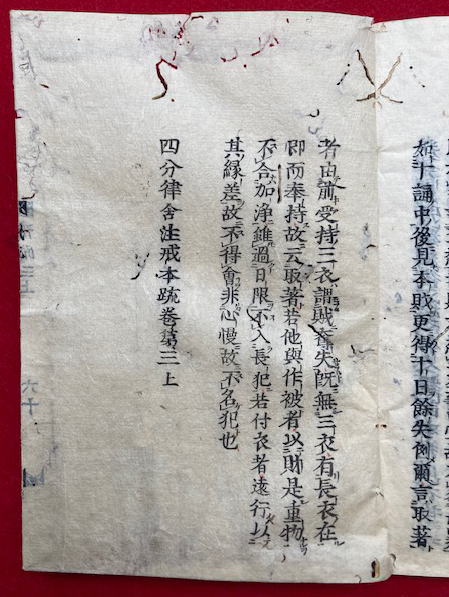 如十誦中後見本賊更得十日餘失例爾言取著
者由前受持三衣謂賊奪失既無三衣有長衣在
即而奉持故云取著若他與作被者以財是重物
不合加淨雖過日限不入長犯若付衣者遠行以
其縁差故不得會非心慢故不名犯也
四分律含注戒本䟽卷第三上